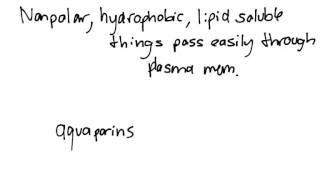 Nonpolar, hydrophobic, lipid soluble
things pass easily through
plasma mem.
aquaporins